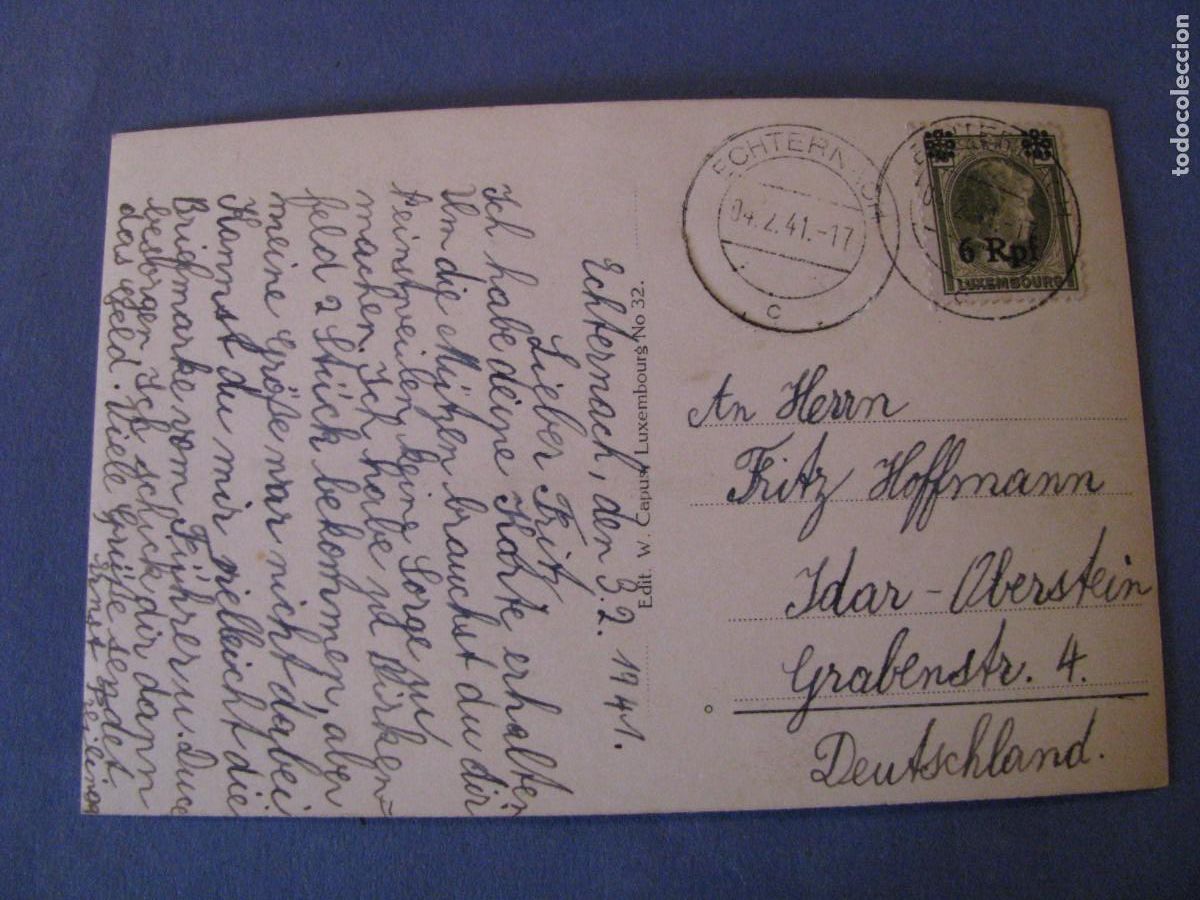 todocoleccion
ECHTERNACH
04.2.41.-17
C
6 Rpf
LUXEMBOURG
An Herrn
Fritz Hoffmann
Idar-Oberstein
Grabenstr. 4.
Deutschland.
Edit. W. Capus, Luxembourg No 32.
Echternach, den 3.2. 1941.
Lieber Fritz
Ich habe deine Karte erhalten
Um die Mützen brauchst du dir
einstweilen keine Sorge zu
machen. Ich habe in Birken-
feld 2 Stück bekommen, aber
meine Größe war nicht dabei
Kannst du mir vielleicht die
Briefmarke vom Führer u. Duce
besorgen. Ich schick dir dann
das Geld. Viele Grüße sendet.
Ernst